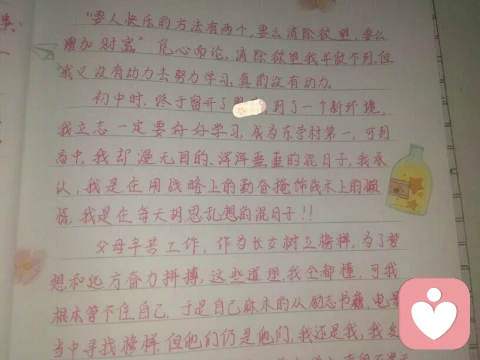 "要人快乐的方法有两个,要么消除欲望,要么
增加财富"凭心而论,消除欲望我并做不到,但
我又没有动力去努力学习,真的没有动力。
初中时,终于离开了 到了一个新环境,
我立志一定要好好学习,成为东学村第一,可到
高中,我却漫无目的、浑浑垂垂的混日子,我承
认,我是在用战略上的勤奋掩饰战术上的懒
惰,我是在每天胡思乱想的混日子!!
父母辛苦工作,作为长女树立榜样,为了梦
想和远方奋力拼搏,这些道理,我全都懂,可我
根本管不住自己,于是自己麻木的从励志书籍,电
当中寻找榜样,但他们仍是他们,我还是我,我